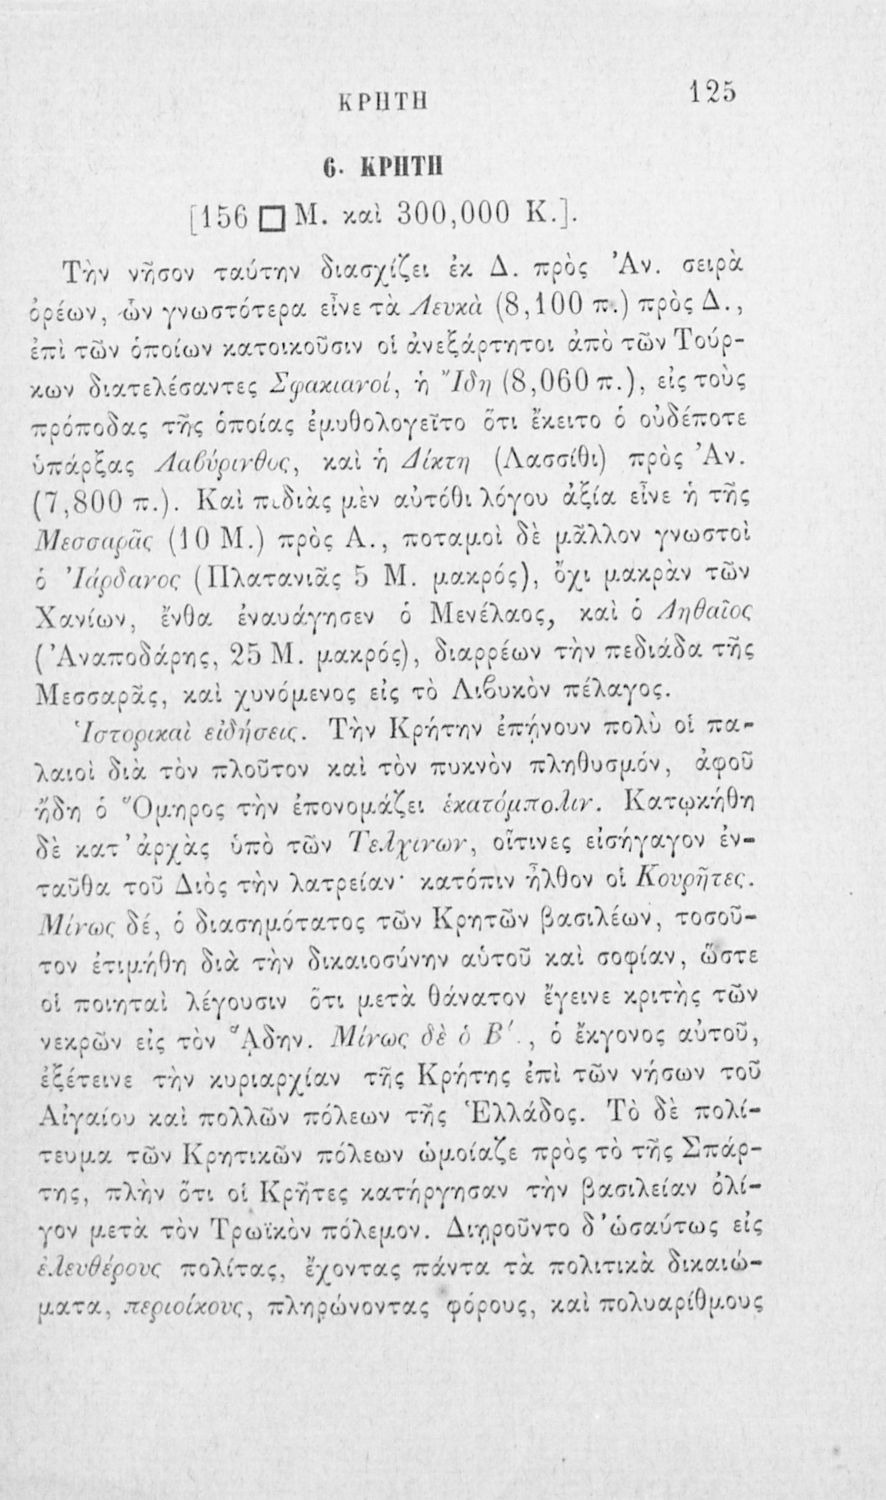 ΚΡΗΤΗ 125
6. ΚΡΗΤΗ
[156 □ Μ. καὶ 300,000 Κ.].
Τὴν νῆσον ταύτην διασχίζει ἐκ Δ. πρὸς Ἀν. σειρὰ
ὀρέων, ὧν γνωστότερα εἶνε τὰ Λευκὰ (8,100 π.) πρὸς Δ.,
ἐπὶ τῶν ὁποίων κατοικοῦσιν οἱ ἀνεξάρτητοι ἀπὸ τῶν Τούρ-
κων διατελέσαντες Σφακιανοί, ἡ Ἴδη (8,060 π.), εἰς τοὺς
πρόποδας τῆς ὁποίας ἐμυθολογεῖτο ὅτι ἔκειτο ὁ οὐδέποτε
ὑπάρξας Λαβύρινθος, καὶ ἡ Δίκτη (Λασσίθι) πρὸς Ἀν.
(7,800 π.). Καὶ πεδιὰς μὲν αὐτόθι λόγου ἀξία εἶνε ἡ τῆς
Μεσσαρᾶς (10 Μ.) πρὸς Α., ποταμοὶ δὲ μᾶλλον γνωστοὶ
ὁ Ἰάρδανος (Πλατανιᾶς 5 Μ. μακρός), ὄχι μακρὰν τῶν
Χανίων, ἔνθα ἐναυάγησεν ὁ Μενέλαος, καὶ ὁ Ληθαῖος
(Ἀναποδάρης, 25 Μ. μακρός), διαρρέων τὴν πεδιάδα τῆς
Μεσσαρᾶς, καὶ χυνόμενος εἰς τὸ Λιβυκὸν πέλαγος.
Ἱστορικαὶ εἰδήσεις. Τὴν Κρήτην ἐπῄνουν πολὺ οἱ πα-
λαιοὶ διὰ τὸν πλοῦτον καὶ τὸν πυκνὸν πληθυσμόν, ἀφοῦ
ἤδη ὁ Ὅμηρος τὴν ἐπονομάζει ἑκατόμπολιν. Κατῳκήθη
δὲ κατ' ἀρχὰς ὑπὸ τῶν Τελχινων, οἵτινες εἰσήγαγον ἐν-
ταῦθα τοῦ Διὸς τὴν λατρείαν· κατόπιν ἦλθον οἱ Κουρῆτες.
Μίνως δέ, ὁ διασημότατος τῶν Κρητῶν βασιλέων, τοσοῦ-
τον ἐτιμήθη διὰ τὴν δικαιοσύνην αὑτοῦ καὶ σοφίαν, ὥστε
οἱ ποιηταὶ λέγουσιν ὅτι μετὰ θάνατον ἔγεινε κριτὴς τῶν
νεκρῶν εἰς τὸν ᾍδην. Μίνως δὲ ὁ Β΄., ὁ ἔκγονος αὐτοῦ,
ἐξέτεινε τὴν κυριαρχίαν τῆς Κρήτης ἐπὶ τῶν νήσων τοῦ
Αἰγαίου καὶ πολλῶν πόλεων τῆς Ἑλλάδος. Τὸ δὲ πολί-
τευμα τῶν Κρητικῶν πόλεων ὡμοίαζε πρὸς τὸ τῆς Σπάρ-
της, πλὴν ὅτι οἱ Κρῆτες κατήργησαν τὴν βασιλείαν ὀλί-
γον μετὰ τὸν Τρωϊκὸν πόλεμον. Διῃροῦντο δ' ὡσαύτως εἰς
ἐλευθέρους πολίτας, ἔχοντας πάντα τὰ πολιτικὰ δικαιώ-
ματα, περιοίκους, πληρώνοντας φόρους, καὶ πολυαρίθμους